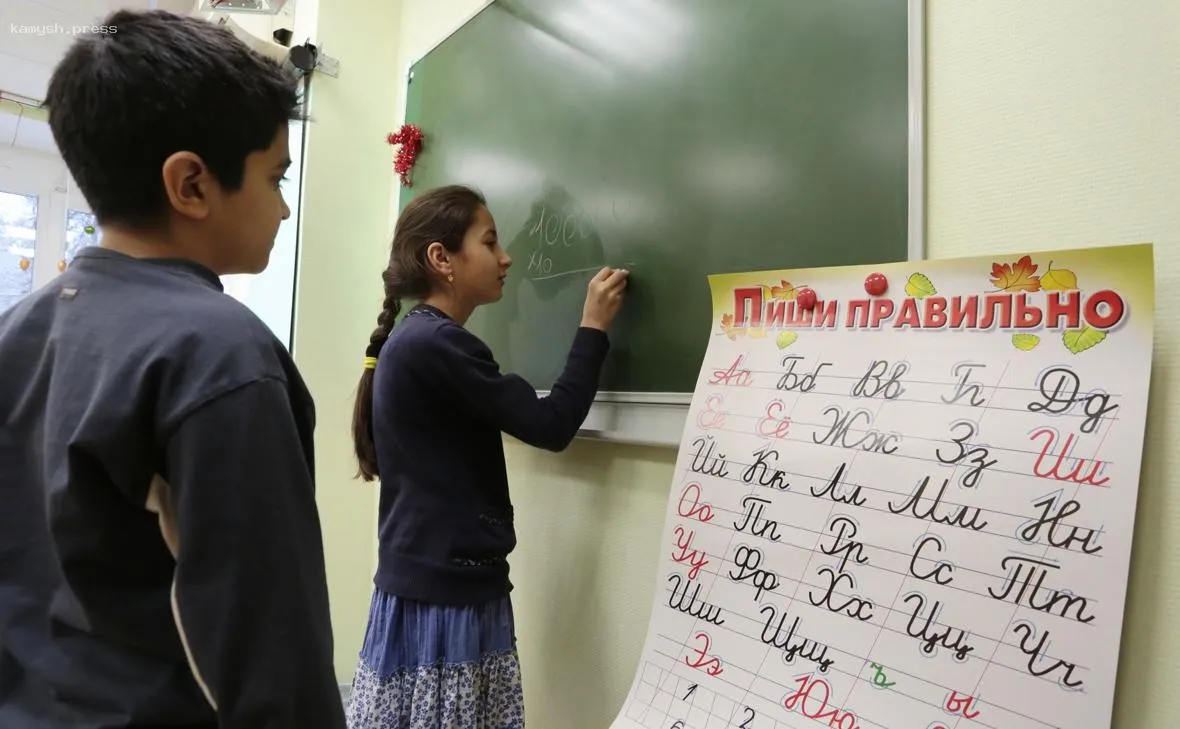 kamysh.press
Пиши ПРАВИЛЬНО
Аа Бб Вв Гг Дд
Ее Ёё Жж Зз Ии
Йй Кк Лл Мм Нн
Оо Пп Рр Сс Тт
Уу Фф Хх Цц Чч
Шш Щщ ъ ы
Ээ Юю
1 2